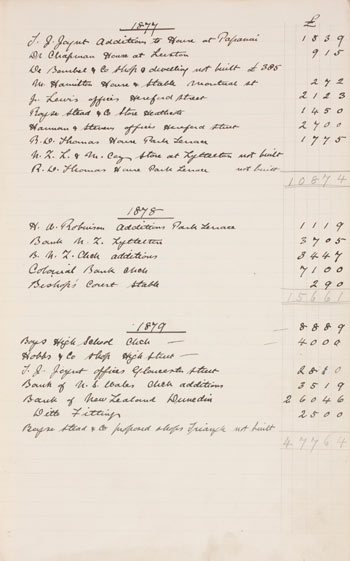 1877 £
T. J. Joynt Additions to House at Papanui 1539
Dr Chapman House at Leeston 915
De Bourbel & Co Shop & dwelling not built £385
M. Hamilton House & Stable Montreal st 272
J. Lewis offices Hereford street 2123
Royse Stead & Co Store Heathcote 1450
Harman & Stevens offices Hereford street 2700
R. D. Thomas House Park Terrace 1775
N. Z. L. & M. Coy Store at Lyttelton not built
R. D. Thomas House Park Terrace not built
10874
1878
H. W. Robinson Additions Park Terrace 1119
Bank N. Z. Lyttelton 3705
B. N. Z. Chch additions 3447
Colonial Bank Chch 7100
Bishop's Court stable 290
15661
1879
Boys High School Chch — 8889
Hobbs & Co shop High Street — 4000
T. J. Joynt offices Gloucester street 2810
Bank of N. S. Wales Chch additions 3519
Bank of New Zealand Dunedin 26046
Ditto Fittings 2500
Royse Stead & Co proposed shops Triangle not built
47764